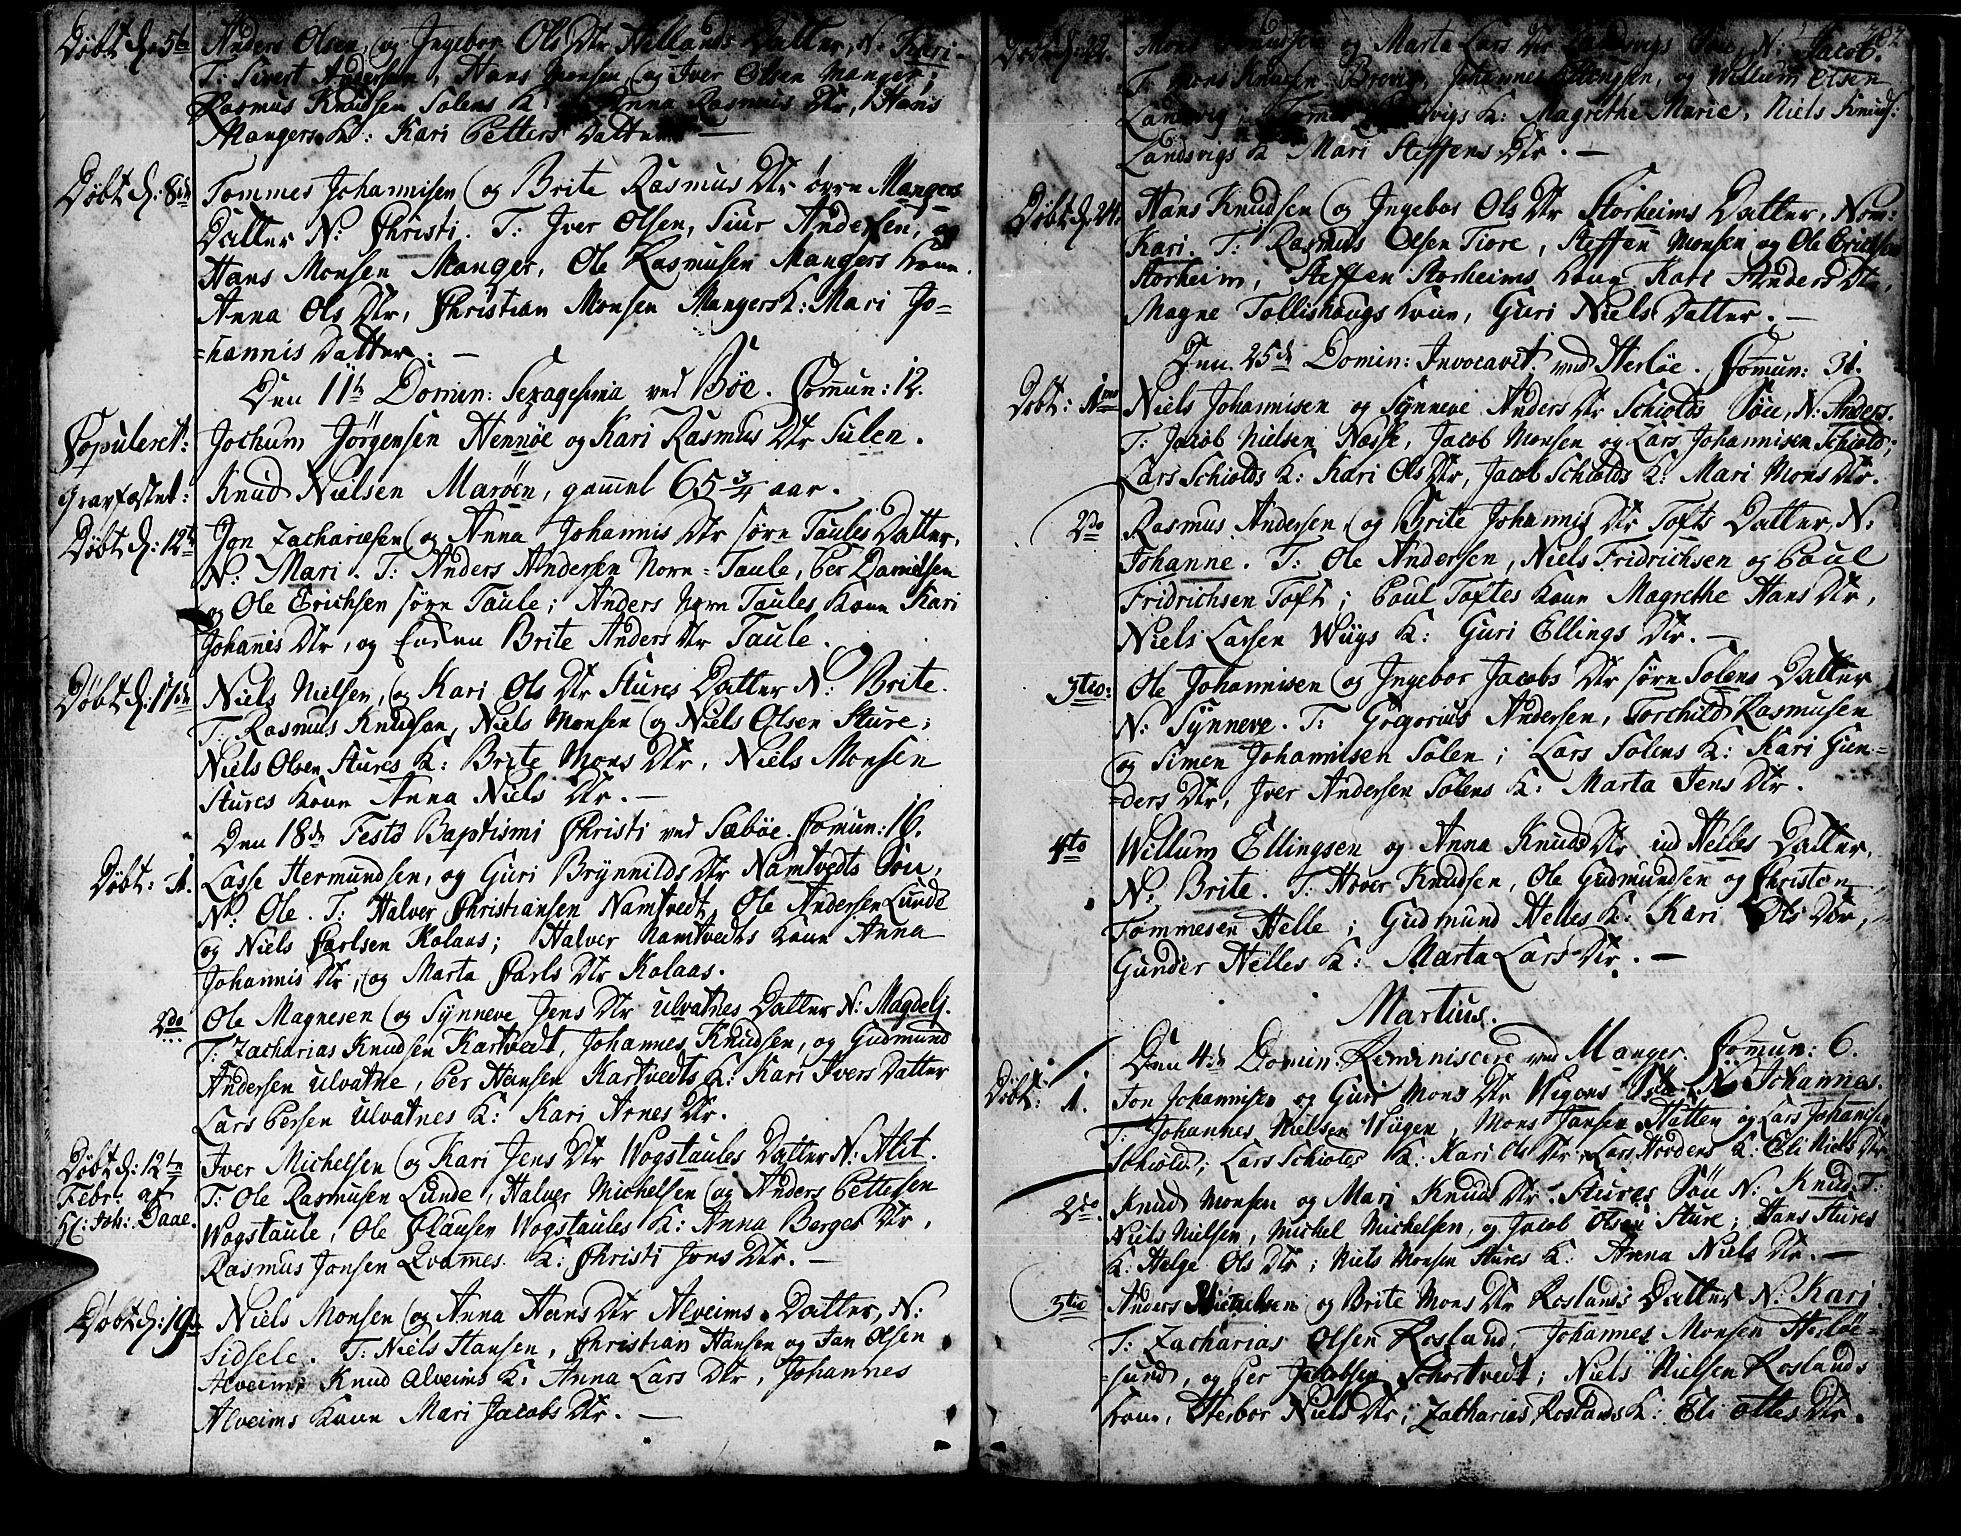 Döbt d: 5te Anders Olsen, og Ingebor Ols Dtr Hellands Datter, N: Kari.
T: Sivert Andersen, Hans Monsen og Iver Olsen Manger;
Rasmus Knudsen Solens K: Anna Rasmus Dtr, Hans
Mangers K: Kari Petters Datter. —
Döbt d: 8de Tommes Johannisen og Brite Rasmus Dtr övre Mangers
Datter N: Christi. T: Iver Olsen, Siur Andersen, og
Hans Monsen Manger, Ole Rasmusen Mangers kone
Anna Ols Dtr, Christian Monsen Mangers K: Mari Jo=
=hannis Datter. —
Den 11te Domin: Sexagesima ved Böe. Comun: 12.
Copuleret: Jochum Jörgensen Hennöe og Kari Rasmus Dtr Sulen.
Gravfæstet: Knud Nielsen Maröen, gamel 65 3/4 aar.
Döbt d: 12te Jon Zachariesen og Anna Johannis Dtr sörn Taules Datter,
N: Mari. T: Anders Andersen Norn=Taule, Per Danielsen
og Ole Erichsen sörn Taule; Anders Norn Taules kone Kari
Johanis Dtr, og Brite Anders Dtr Taule.
Döbt d: 17de Niels Nielsen, og Kari Ols Dtr Stures Datter N: Brite.
T: Rasmus Knudsen, Niels Monsen og Niels Olsen Sture;
Niels Olsen Stures K: Brite Mons Dtr, Niels Monsen
Stures kone Anna Niels Dtr. —
Den 18de Festo Baptismi Christi ved Sæböe. Comun: 16.
Döbt: 1. Lasse Hermundsen, og Guri Brynnilds Dtr Namtvedts Sön,
N: Ole. T: Halver Christiansen Namtvedt, Ole Andersen Lunde
og Niels Carlsen Kolaas; Halver Namtvedts kone Anna
Johannis Dtr, og Marta Carls Dtr Kolaas.
2do Ole Magnesen og Synneve Jens Dtr Ulvatnes Datter N: Magdelj.
T: Zacharias Knudsen Kartvedt, Johannes Knudsen, og Gudmund
Andersen Ulvatne, Per Hansen Kartvedts K: Kari Ivers Datter
Lars Persen Ulvatnes K: Kari Arnes Dtr.
Döbt d: 12te Iver Michelsen og Kari Jens Dtr Wogstaules Datter N: Alit.
Febr: af T: Ole Rasmusen Lunde, Halver Michelsen og Anders Pettersen
Hr: Joh: Daae. Wogstaule, Ole Clausen Wogstaules K: Anna Berges Dtr,
Rasmus Jonsen Qvames K: Christi Jons Dtr. —
Döbt d: 19de Niels Monsen og Anna Hans Dtr Alveims Datter, N:
Sidsele. T: Niels Hansen, Christian Hansen og Jan Olsen
Alveim; Knud Alveims K: Anna Lars Dtr, Johannes
Alveims kone Mari Jacobs Dtr. —
Döbt d: 22. Mons Knudsen og Marta Lars Dtr Landsvigs Sön, N: Jacob.
T: Mons Knudsen Brovig, Johannes Ellingsen, og Willum Olsen
Landsvig, Tommes Landsvigs K: Magrethe Marie, Niels Knuds:
Landsvigs K Mari Steffens Dtr. —
Döbt d: 24. Hans Knudsen og Ingebor Ols Dtr Storheims Datter, Nom:
Kari. T: Rasmus Olsen Tiore, Steffen Monsen og Ole Erichsen
Storheim, Steffen Storheims kone Kari Anders Dtr,
Magne Tollishougs kone, Guri Niels Datter. —
Den 25de Domin: Invocavit ved Herlöe. Comun: 31.
Döbt: 1mo Niels Johannisen og Synneve Anders Dtr Schiolds Sön, N: Anders.
T: Jacob Nielsen Nasse, Jacob Monsen og Lars Johannisen Schiold;
Lars Schiolds K: Kari Ols Dtr, Jacob Schiolds K: Mari Mons Dtr.
2do Rasmus Andersen og Brite Johannis Dtr Tofts Datter, N:
Johanne. T: Ole Andersen, Niels Fridrichsen og Poul
Fridrichsen Toft; Poul Toftes kone Magrethe Hans Dtr,
Niels Larsen Wiigs K: Guri Ellings Dtr. —
3tio: Ole Johannisen og Ingebor Jacobs Dtr sörn Solens Datter
N: Synneve. T: Gregorius Andersen, Torchild Rasmusen
og Simen Johannisen Solen; Lars Solens K: Kari Gun=
=ders Dtr, Iver Andersen Solens K: Marta Jens Dtr.
4to Willum Ellingsen og Anna Knuds Dtr ind Helles Datter,
N: Brite. T: Hover Knudsen, Ole Gudmundsen og Christen
Tommesen Helle; Gudmund Helles K: Kari Ols Dtr,
Gunder Helles K: Marta Lars Dtr. —
Martius.
Den 4de Domin: Reminiscere ved Manger. Comun: 6.
Döbt: 1. Jon Johannisen og Guri Mons Dtr Wigens Sön N: Johannes.
T: Johannes Nielsen Wiigen, Mons Jansen Hatten og Lars Johannisen
Schiold; Lars Schiolds K: Kari Ols Dtr, Lars Hordens K: Eli Niels Dtr
2do. Knud Monsen og Mari Knuds Dtr Stures Sön N: Knud. T:
Niels Nielsen, Michel Michelsen, og Jacob Olsen Sture; Hans Stures
K: Helge Ols Dtr; Niels Monsen Stures K: Anna Niels Dtr. —
3tio Anders Michelsen og Brite Mons Dtr Roslands Datter N: Kari
T: Zacharias Olsen Rosland, Johannes Monsen Herlöe=
=sund, og Per Jacobsen Schortvedt; Niels Nielsen Roslands
kone, Herbor Niels Dtr; Zacharias Roslands K: Eli Ottes Dtr.